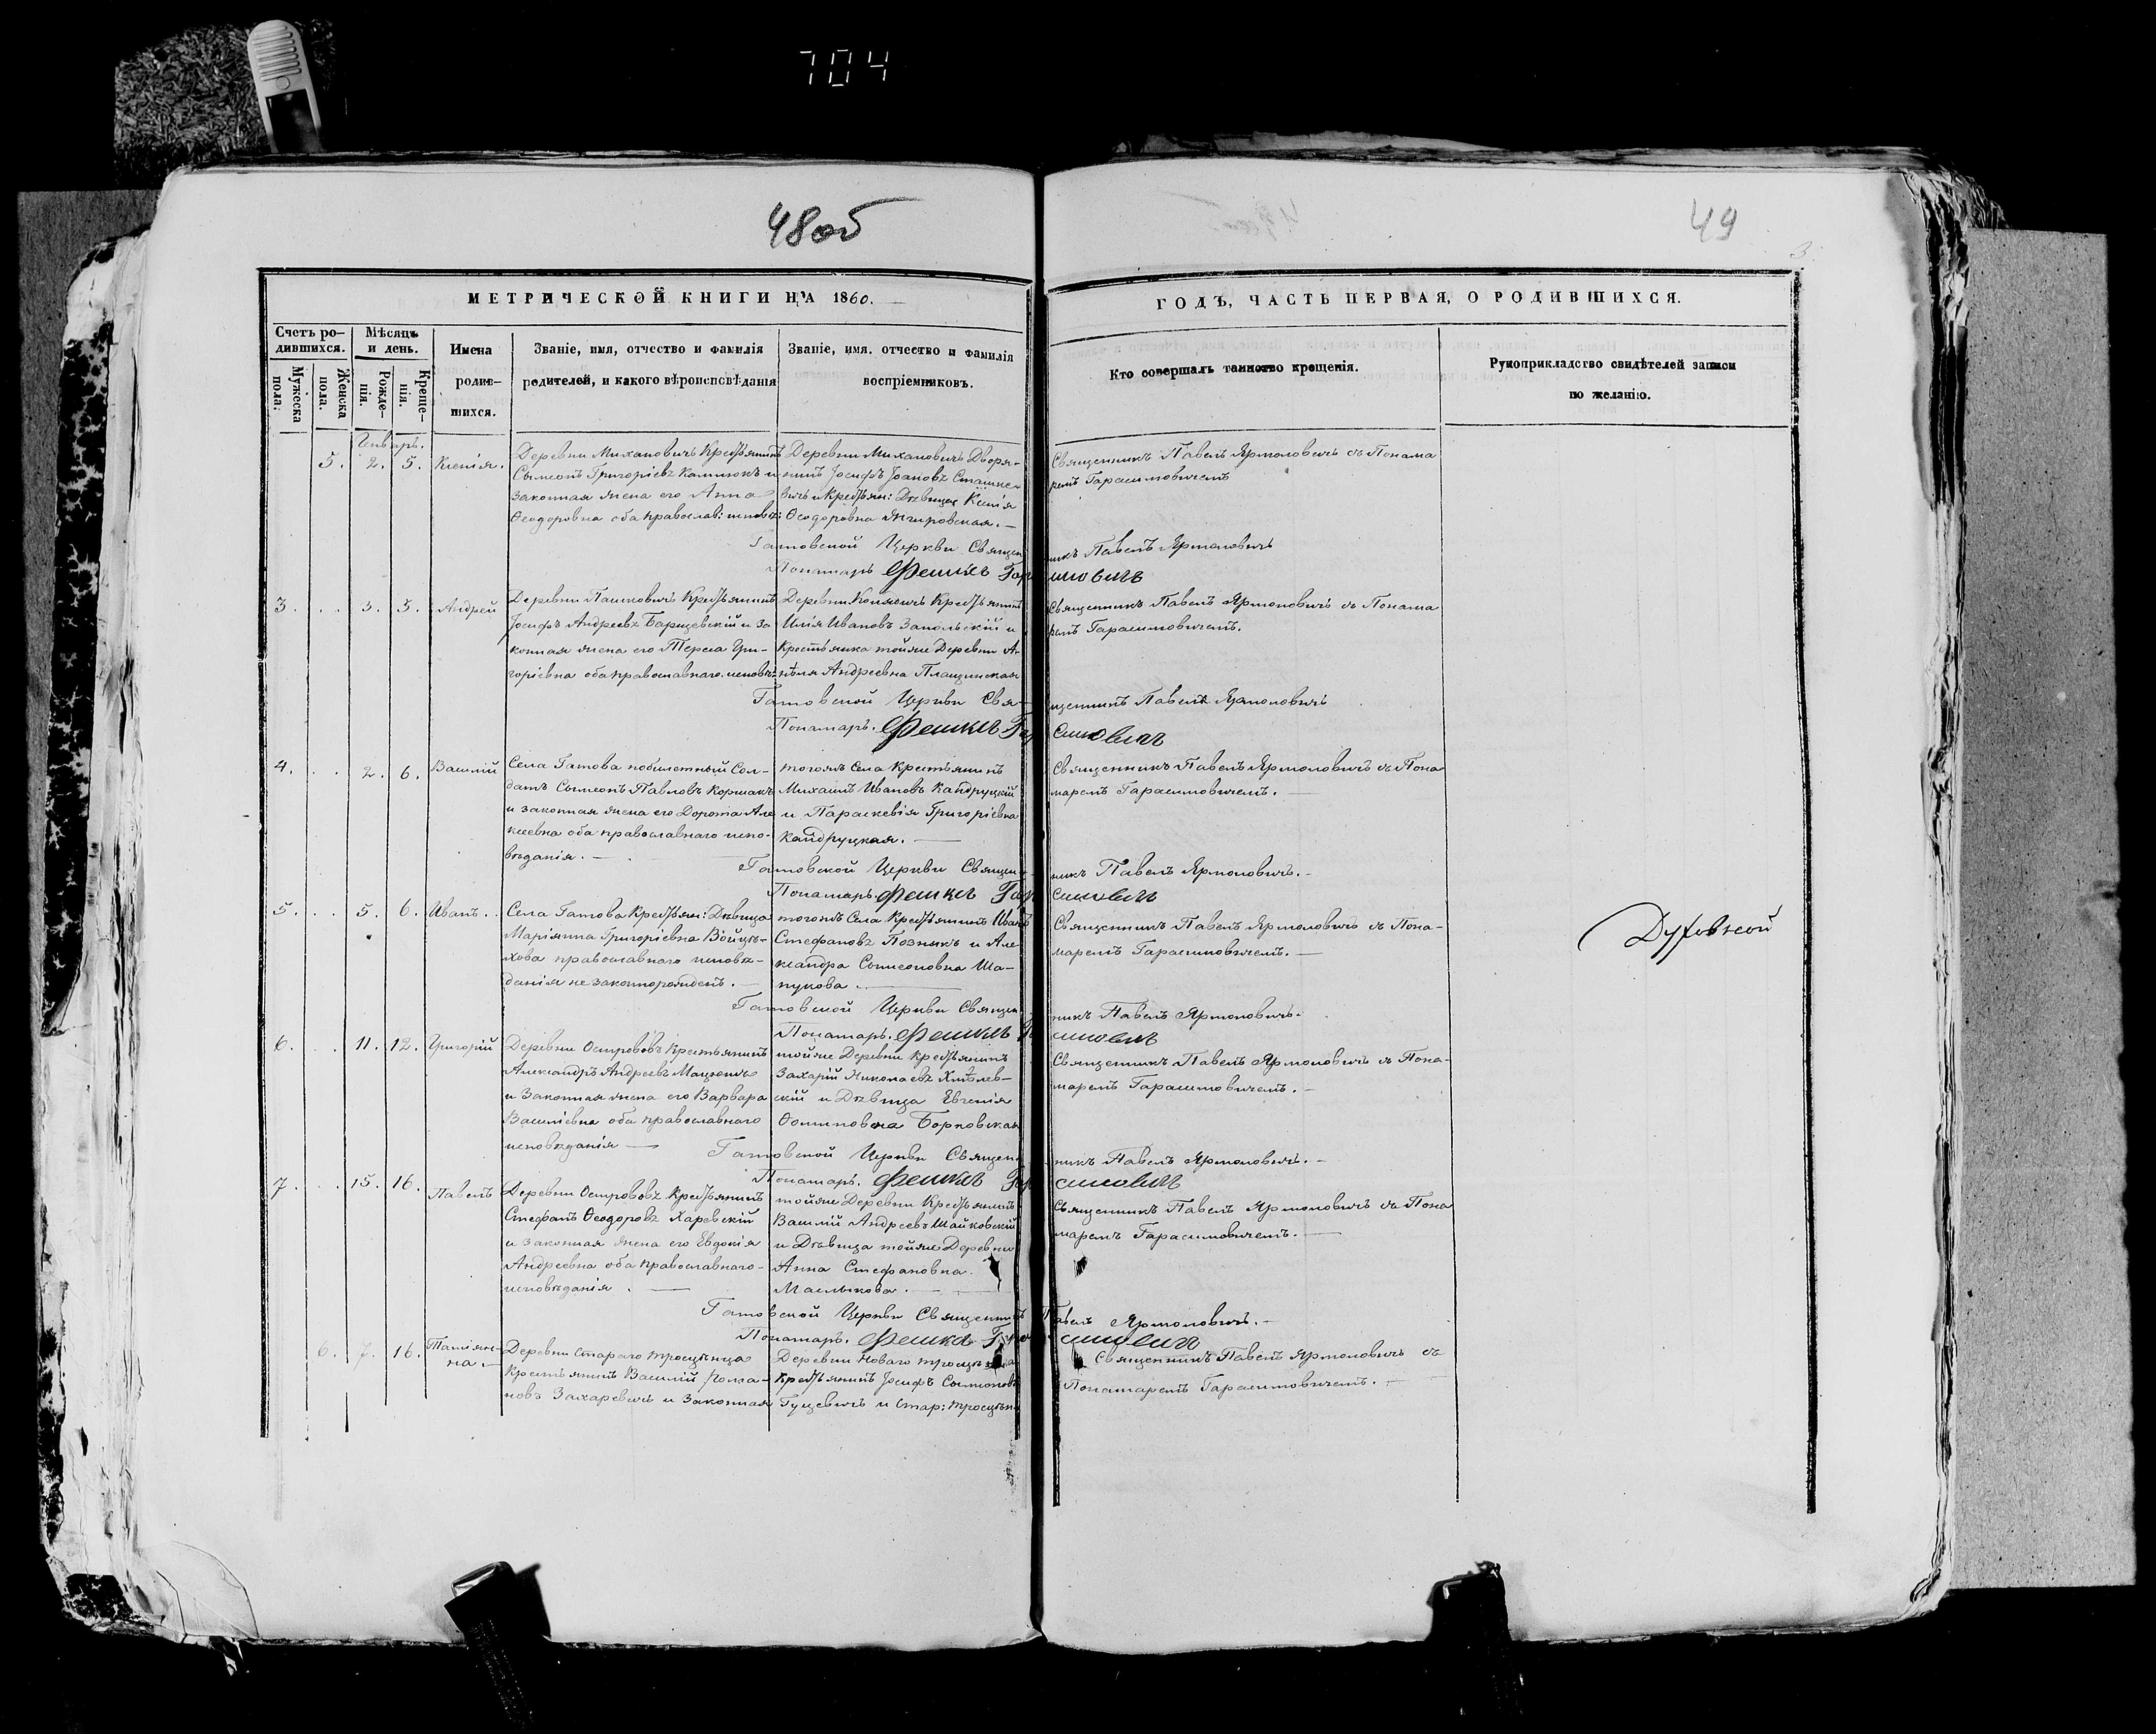 704
48об
49
3.
МЕТРИЧЕСКОЙ КНИГИ НА 1860.
ГОДЪ, ЧАСТЬ ПЕРВАЯ, О РОДИВШИХСЯ.
Счетъ ро-
дившихся.
Мужеска
пола.
Женска
пола.
Мѣсяцъ
и день.
Рожде-
нія.
Креще-
нія.
Имена
родив-
шихся.
Званіе, имя, отчество и фамилія
родителей, и какого вѣроисповѣданія
Званіе, имя. отчество и фамилія
воспріемниковъ.
Кто совершалъ таинство крещенія.
Рукоприкладство свидѣтелей записи
по желанію.
Генварь.
5. 2. 5. Ксенія.
Деревни Михановичъ Крестьянинъ
Сѵмеонъ Григоріевъ Калинокъ и
законная жена его Анна
Ѳеодоровна оба православ: исповѣ:
Деревни Михановичъ Дворя-
нинъ Іосифъ Іоановъ Сташке-
вичъ и Крестьян: Дѣвица Ксенія
Ѳеодоровна Жгировская. —
Священникъ Павелъ Ярмоловичъ съ Понама
ремъ Гарасимовичемъ
Гатовской Церкви Священникъ Павелъ Ярмоловичъ
Понамарь Феликсъ Гарасимовичъ
3. . . 3. 5. Андрей
Деревни Пашковичъ Крестьянинъ
Іосифъ Андреевъ Барщевскій и За
конная жена его Тереса Гри-
горіевна оба православнаго исповѣ:
Деревни Копіевичъ Крестьянинъ
Илія Ивановъ Запольскій и
Крестьянка тойже Деревни А-
нѣля Андреевна Плащинская
Священникъ Павелъ Ярмоловичъ съ Понама
ремъ Гарасимовичемъ.
Гатовской Церкви Священникъ Павелъ Ярмоловичъ
Понамарь. Феликсъ Гарасимовичъ
4. . . 2. 6. Василій
Села Гатова побилетный Сол-
датъ Сѵмеонъ Павловъ Коршакъ
и законная жена его Дорота Але
ксеевна оба православнаго испо-
вѣданія. —
тогожъ Села Крестьянинъ
Михаилъ Ивановъ Кайдруцкій
и Параскевія Григоріевна
Кайдруцкая. —
Священникъ Павелъ Ярмоловичъ съ Пона
маремъ Гарасимовичемъ. —
Гатовской Церкви Священникъ Павелъ Ярмоловичъ. —
Понамарь Феликсъ Гарасимовичъ
5. . . 5. 6. Иванъ. .
Села Гатова Крестьян: Дѣвица
Маріянна Григоріевна Войцѣ-
хова православнаго исповѣ-
данія не законнорожденъ. —
тогожъ Села Крестьянинъ Иванъ
Стефановъ Познякъ и Але
ксандра Сѵмеоновна Ша-
пукова. —
Священникъ Павелъ Ярмоловичъ съ Пона-
маремъ Гарасимовичемъ. —
Духовной
Гатовской Церкви Священникъ Павелъ Ярмоловичъ.
Понамарь. Феликсъ Гарасимовичъ
6. . . 11. 12. Григорій
Деревни Острововъ Крестьянинъ
Александръ Андреевъ Мацзонъ
и Законная жена его Варвара
Василіевна оба православнаго
исповѣданія —
тойже Деревни Крестьянинъ
Захарій Николаевъ Хмѣлев-
скій и Дѣвица Евгенія
Осиповна Борковская
Священникъ Павелъ Ярмоловичъ съ Пона-
маремъ Гарасимовичемъ. —
Гатовской Церкви Священникъ Павелъ Ярмоловичъ. —
Понамарь. Феликсъ Гарасимовичъ
7. . . 15. 16. Павелъ
Деревни Острововъ Крестьянинъ
Стефанъ Ѳеодоровъ Харевскій
и законная жена его Евдокія
Андреевна оба православнаго
исповѣданія. —
тойже Деревни Крестьянинъ
Василій Андреевъ Шайковскій
и Дѣвица тойже Деревни
Анна Стефановна
Маслыкова. —
Священникъ Павелъ Ярмоловичъ съ Пона
маремъ Гарасимовичемъ. —
Гатовской Церкви Священникъ Павелъ Ярмоловичъ. —
Понамарь. Феликсъ Гарасимовичъ
6. 7. 16. Татіян-
на. —
Деревни Стараго Тросцѣнца
Крестьянинъ Василій Рома-
новъ Захаревичъ и Законная
Деревни Новаго Тросцѣнца
Крестьянинъ Іосифъ Сѵмеоновъ
Гуцевичъ и Стар: Тросцѣн
Священникъ Павелъ Ярмоловичъ съ
Понамаремъ Гарасимовичемъ. —